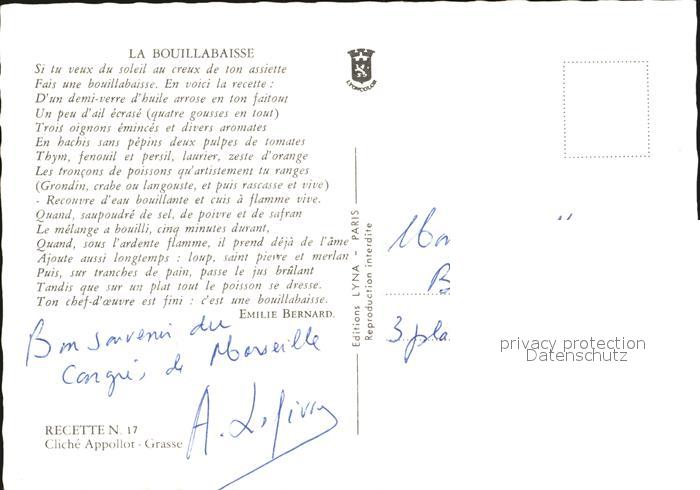 LA BOUILLABAISSE
Si tu veux du soleil au creux de ton assiette
Fais une bouillabaisse. En voici la recette :
D'un demi-verre d'huile arrose en ton faitout
Un peu d'ail écrasé (quatre gousses en tout)
Trois oignons émincés et divers aromates
En hachis sans pépins deux pulpes de tomates
Thym, fenouil et persil, laurier, zeste d'orange
Les tronçons de poissons qu'artistement tu ranges
(Grondin, crabe ou langouste, et puis rascasse et vive)
- Recouvre d'eau bouillante et cuis à flamme vive.
Quand, saupoudré de sel, de poivre et de safran
Le mélange a bouilli, cinq minutes durant,
Quand, sous l'ardente flamme, il prend déjà de l'âme
Ajoute aussi longtemps : loup, saint pierre et merlan
Puis, sur tranches de pain, passe le jus brûlant
Tandis que sur un plat tout le poisson se dresse.
Ton chef-d'œuvre est fini : c'est une bouillabaisse.
EMILIE BERNARD.
Bon souvenir du
Congrès de Marseille
RECETTE N. 17
Cliché Appollot - Grasse
LYONCOLOR
Editions LYNA - PARIS
Reproduction interdite
3 pla
privacy protection
Datenschutz